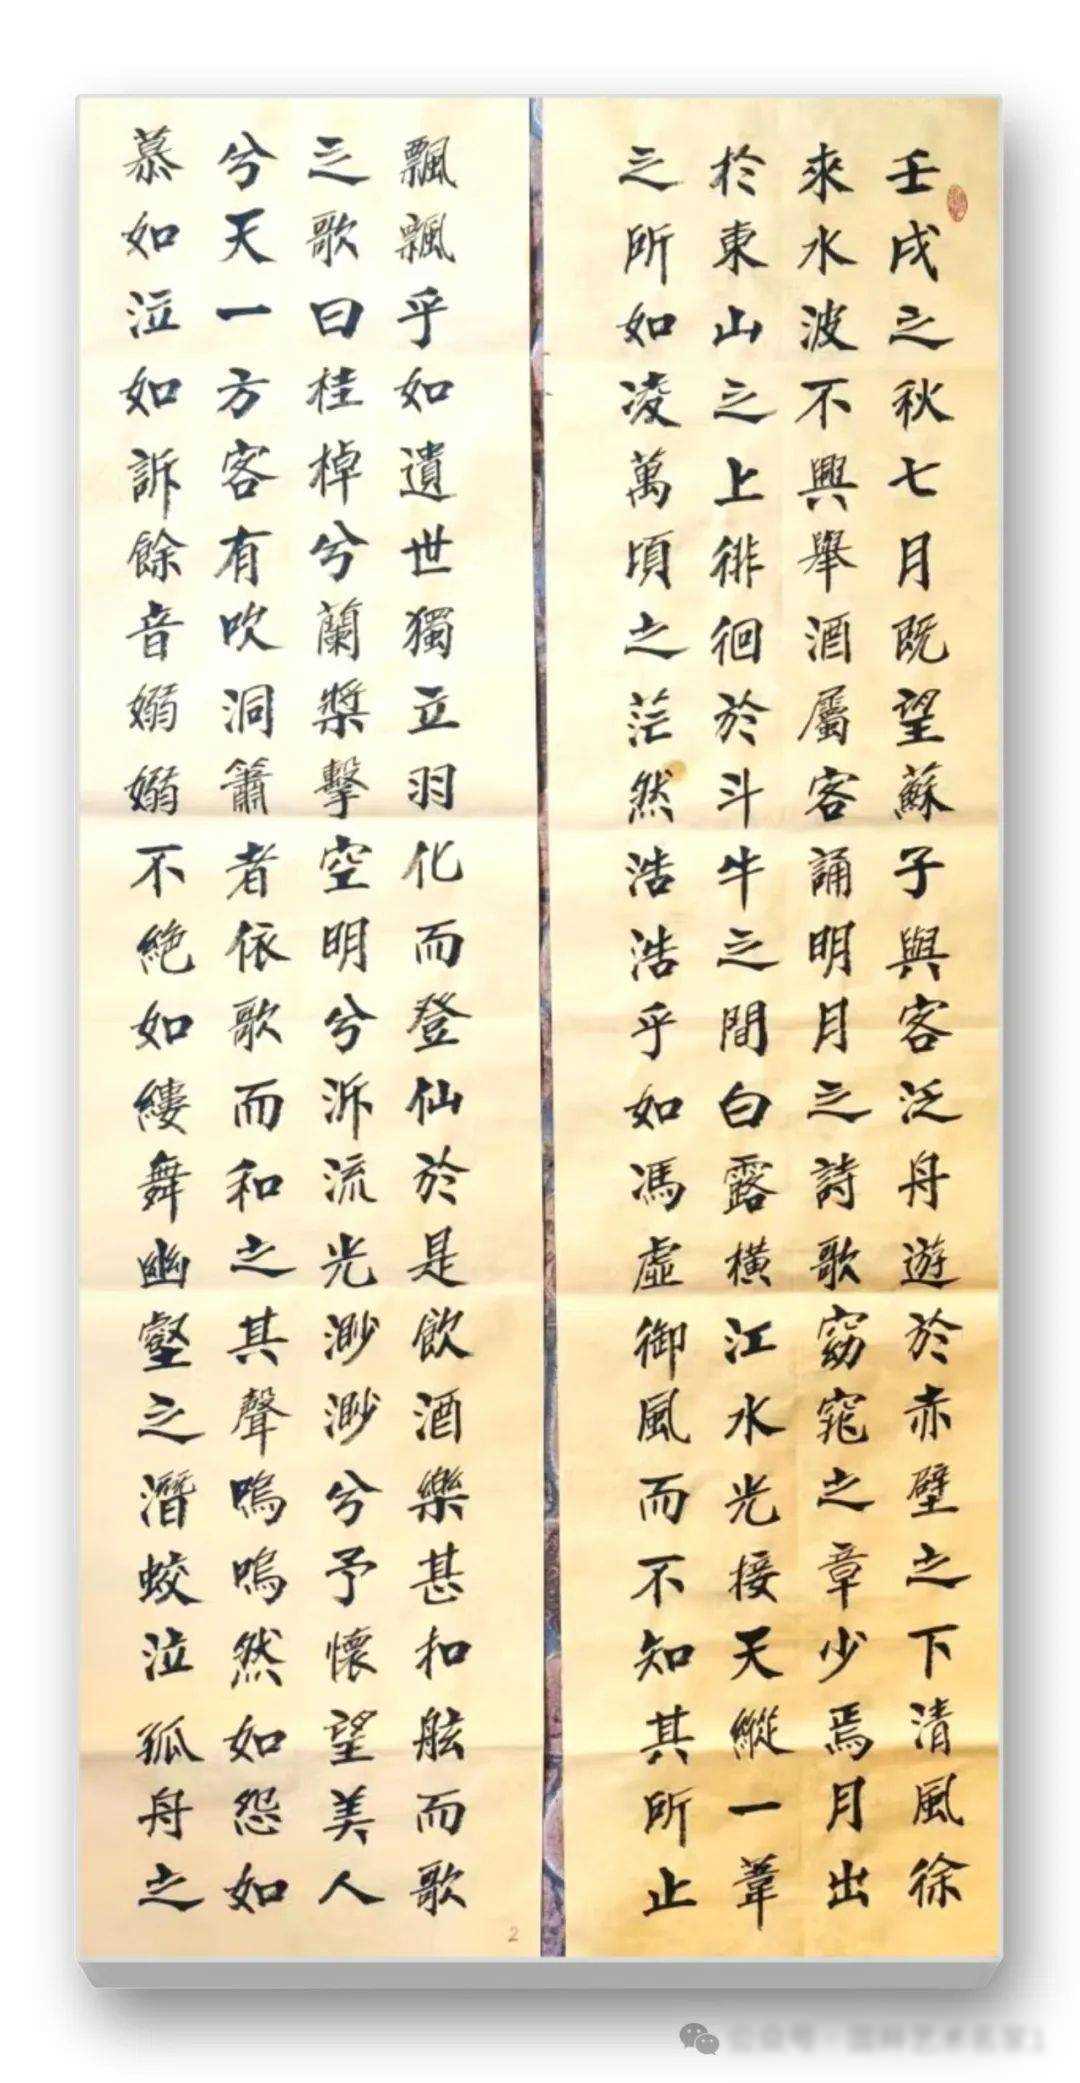 壬戌之秋七月既望蘇子與客泛舟遊於赤壁之下清風徐
來水波不興舉酒屬客誦明月之詩歌窈窕之章少焉月出
於東山之上徘徊於斗牛之間白露橫江水光接天縱一葦
之所如凌萬頃之茫然浩浩乎如馮虛御風而不知其所止
飄飄乎如遺世獨立羽化而登仙於是飲酒樂甚扣舷而歌
之歌曰桂棹兮蘭槳擊空明兮泝流光渺渺兮予懷望美人
兮天一方客有吹洞簫者依歌而和之其聲嗚嗚然如怨如
慕如泣如訴餘音嫋嫋不絕如縷舞幽壑之潛蛟泣孤舟之
2